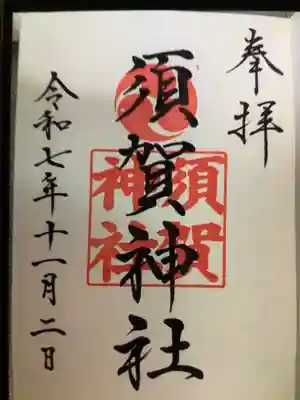 奉拝
須賀神社
須賀
神社
令和七年十一月二日